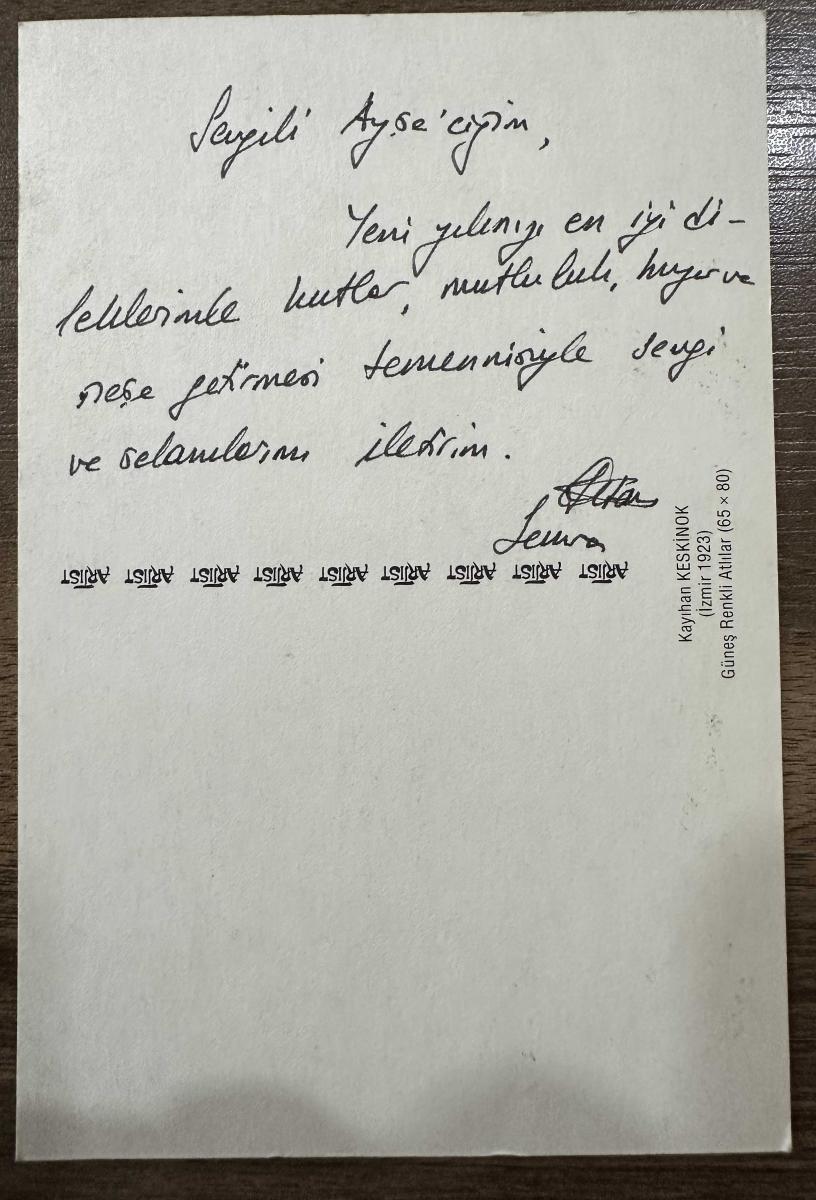 Sevgili Ayşe'ciğim,
Yeni yılınızı en iyi di-
leklerimle kutlar, mutluluk, huzur ve
neşe getirmesi temennisiyle sevgi
ve selamlarımı iletirim.
Semra
ARTIST ARTIST ARTIST ARTIST ARTIST ARTIST ARTIST ARTIST ARTIST
Kayıhan KESKİNOK
(İzmir 1923)
Güneş Renkli Atlılar (65 × 80)